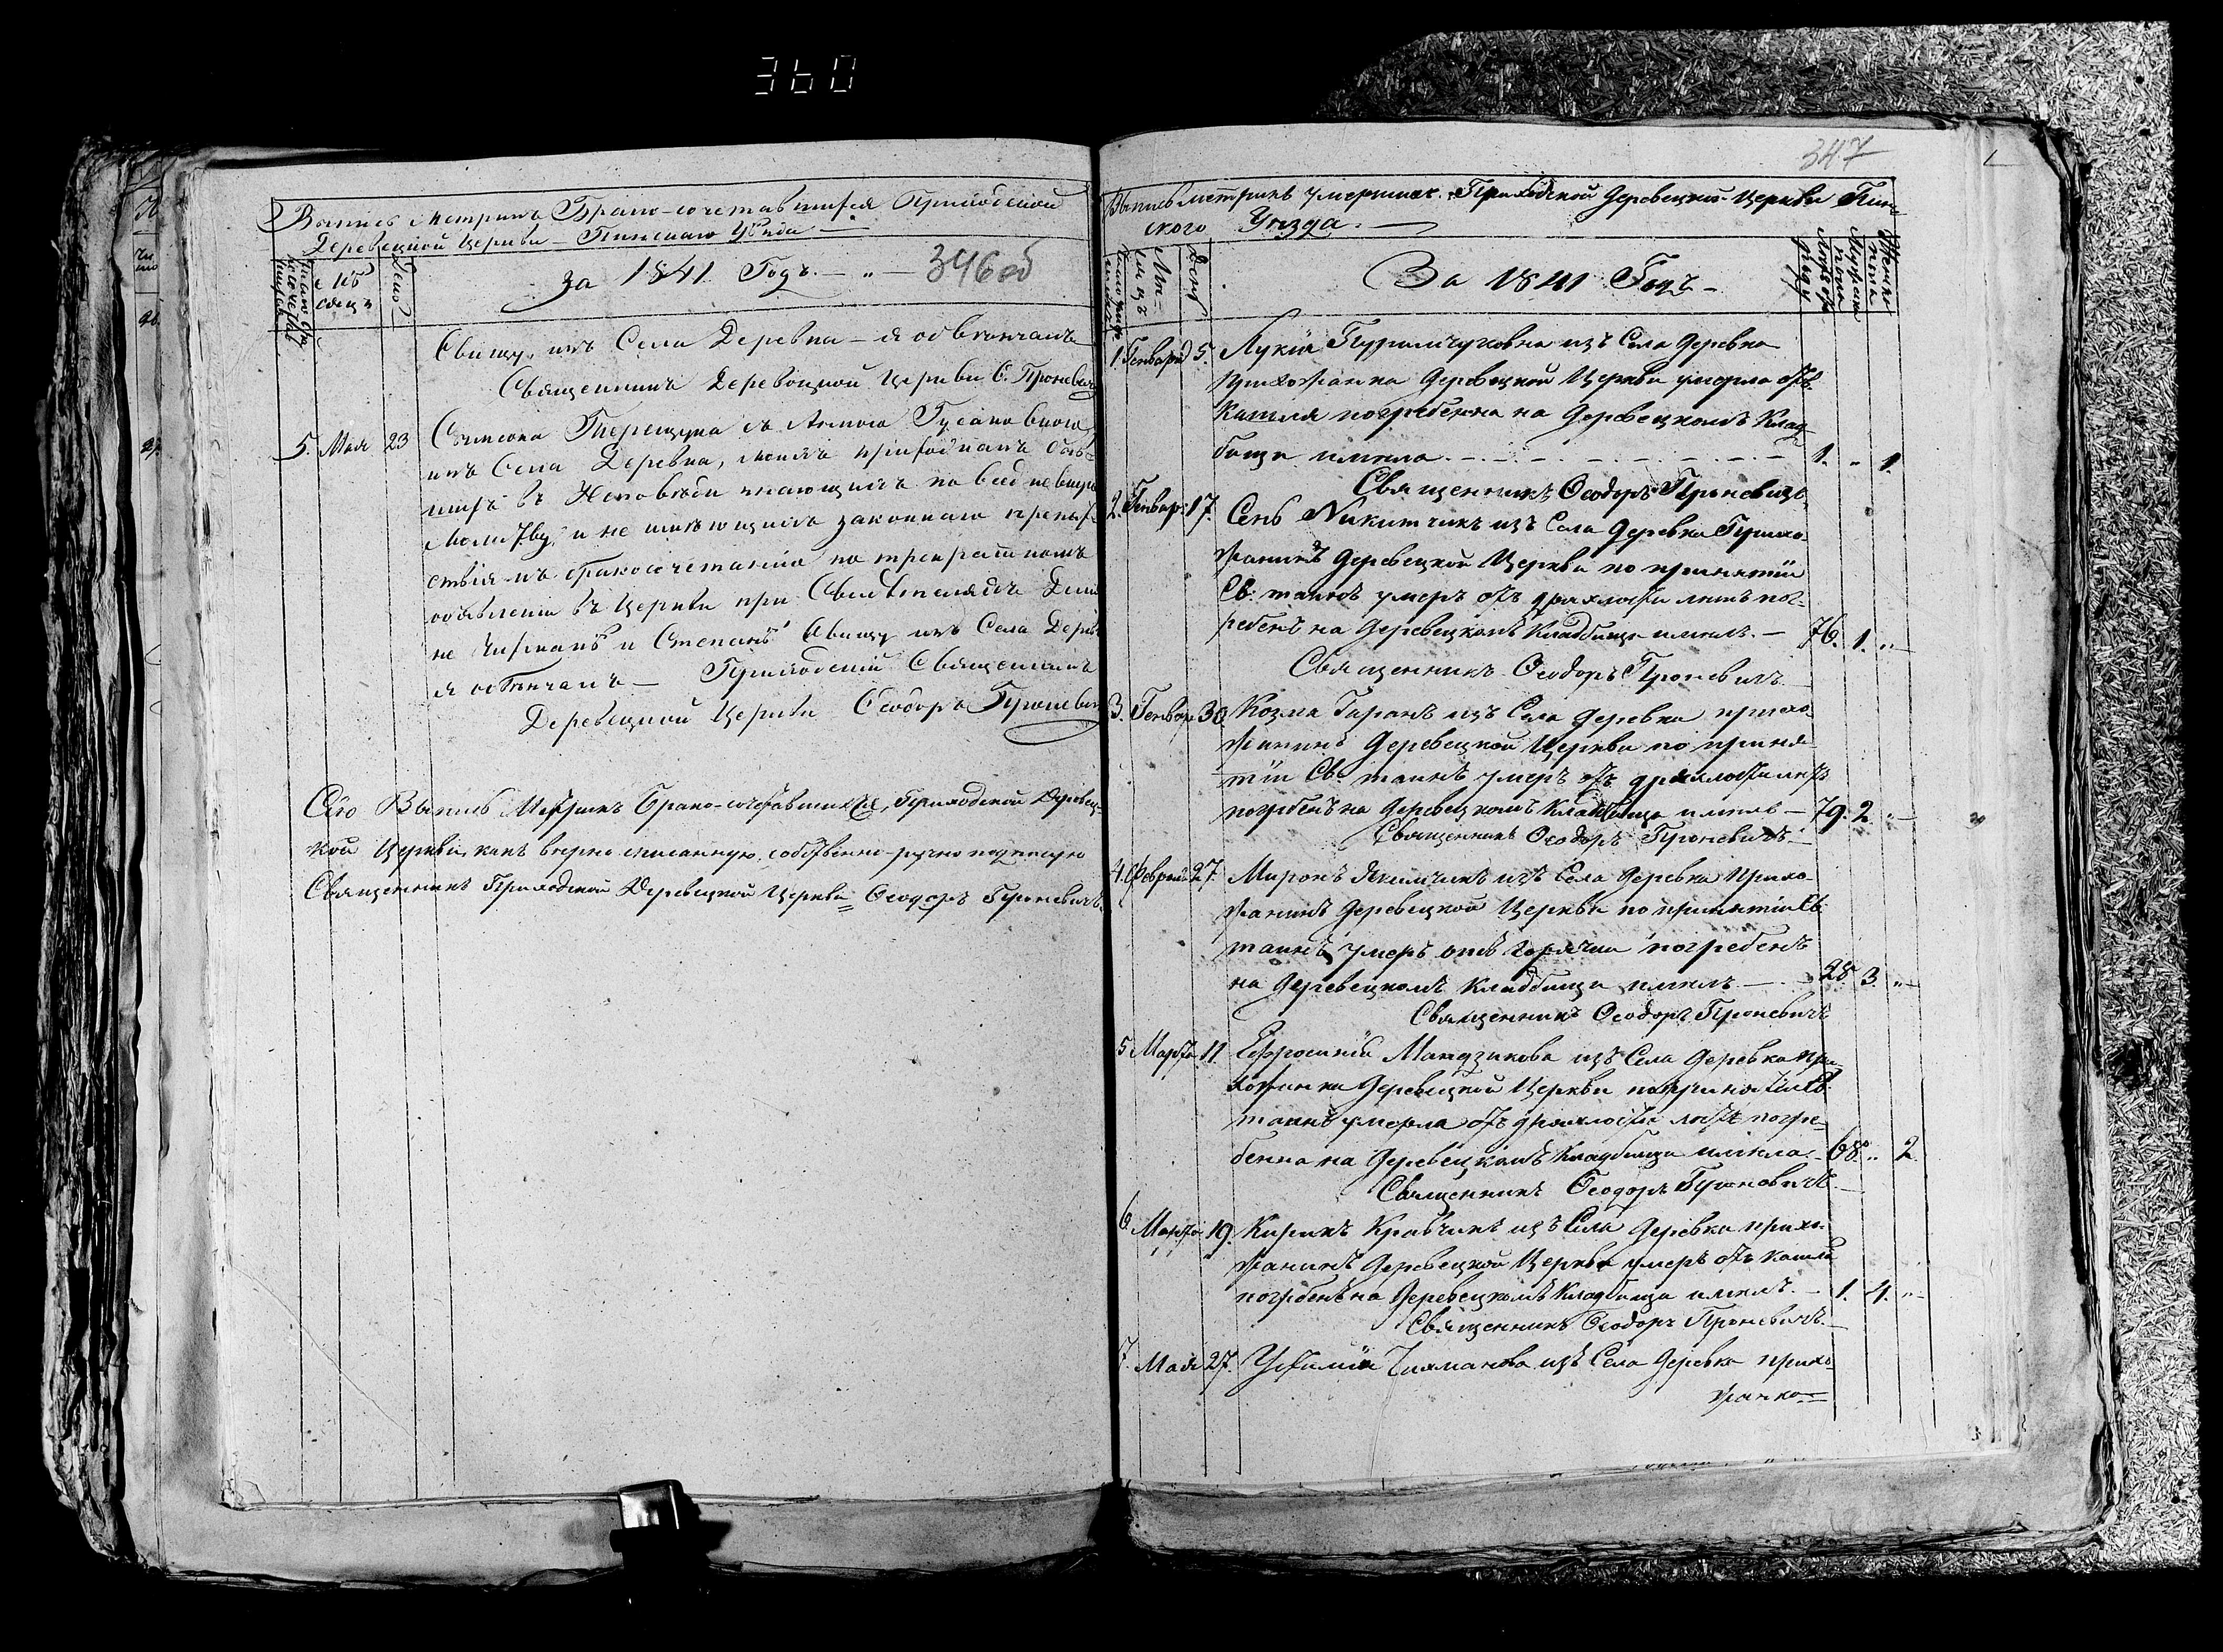 360
Выпись Метрикъ Брако-сочетавшихся Приходской
Деревецкой Церкви Пинскаго Уѣзда
за 1841 Годъ. — „ — 346об
Число
Мѣсяцъ
День
Свищу, изъ Села Деревка — я обвѣнчалъ
Священникъ Деревецкой Церкви Ѳ. Проневичъ
5. Мая 23
Терещука съ Анною
изъ Села Деревка, моихъ прихожанъ бы-
въ Исповѣди знающихъ
Молитву, и не имѣющихъ законнаго препят
ствія къ бракосочетанію по трекратномъ
объявленіи въ Церкви при Свидѣтеляхъ
и Степанѣ Свищу изъ Села Дерев
я обвѣнчалъ — Приходскій Священникъ
Деревецкой Церкви Ѳеодоръ Проневичъ
Сію Выпись Метрикъ Брако-сочетавшихся, Приходской Деревец-
кой Церкви, какъ вѣрно списанную, собственно-ручно подписую
Священникъ Приходской Деревецкой Церкви Ѳеодоръ Проневичъ.
347
Выпись метрикъ умершихъ Приходской Деревецкой Церкви Пин
ского Уѣзда. —
Мѣсяцъ
День
За 1841 Годъ —
Мужеска
Женска
1. Генваря 5. Лукія изъ Села Деревка
прихожанка Деревецкой Церкви умерла отъ
Кашля погребенна на Деревецкомъ Клад
бищѣ имѣла — 1. „ 1.
Священникъ Ѳеодоръ Проневичъ
2. Генвар: 17. Сень Никитчикъ изъ Села Деревка Прихо-
жанинъ Деревецкой Церкви по принятіи
Св: таинъ умеръ отъ дряхлости лѣтъ пог-
ребенъ на Деревецкомъ Кладбищѣ имѣлъ. — 76. 1. „
Священникъ Ѳеодоръ Проневичъ
3. Генвар 30 Козма Гаранъ изъ Села Деревка прихо
жанинъ Деревецкой Церкви по приня-
тіи Св: таинъ умеръ отъ дряхлости лѣтъ
погребенъ на Деревецкомъ Кладбищѣ имѣлъ — 79. 2. „
Священникъ Ѳеодоръ Проневичъ. —
4. Феврал 27. Миронъ Якимчикъ изъ Села Деревка Прихо-
жанинъ Деревецкой Церкви по принятіи Св.
таинъ умеръ отъ горячки погребенъ
на Деревецкомъ Кладбищѣ имѣлъ — 28 3. „
Священникъ Ѳеодоръ Проневичъ
5 Марта 11. Ефросинія Мандзикова изъ Села Деревка при
хожанка Деревецкой Церкви по принятіи Св.
таинъ умерла отъ дряхлости лѣтъ погре-
бенна на Деревецкомъ Кладбищѣ имѣла. — 68. „ 2.
Священникъ Ѳеодоръ Проневичъ —
6. Марта 19. Кирикъ Кравчикъ изъ Села Деревка прихо-
жанинъ Деревецкой Церкви умеръ отъ Кашля
погребенъ на Деревецкомъ Кладбищѣ имѣлъ. — 1. 4. „
Священникъ Ѳеодоръ Проневичъ. —
7. Мая 27. изъ Села Деревка прихо-
жанка